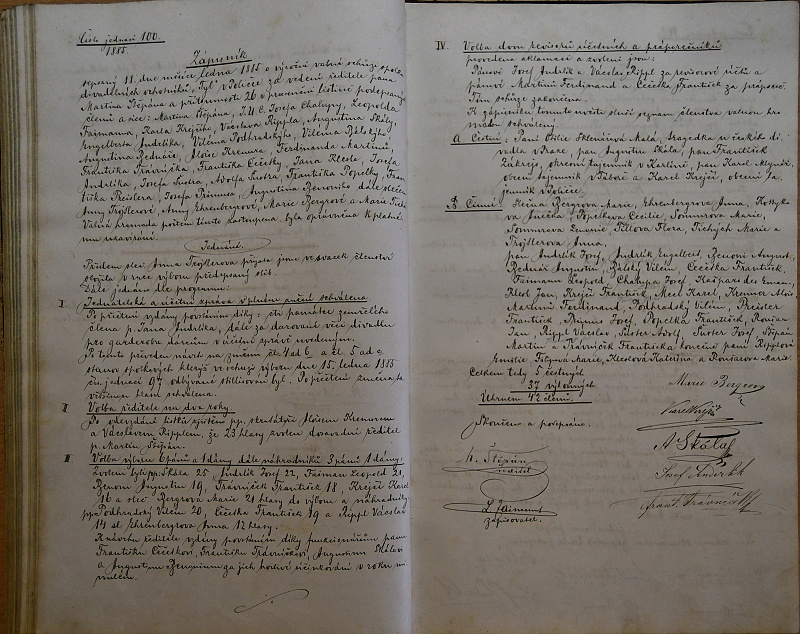 Číslo jednací 100.
1885.
Zápisník
sepsaný 11. dne měsíce ledna 1885 o výroční valné schůze spolku
divadelních ochotníků „Tyl“ v Poličce za vedení ředitele pana
Martina Štěpána a přítomnosti 26 v prezenční listině podepsaných
členů a sice: Martina Štěpána, J.U.C. Josefa Chalupy, Leopolda
Faimanna, Karla Krejčího, Václava Rippla, Augustina Skály,
Engelberta Jindrlika, Viléma Podhradského, Viléma Bálský,
Augustina Bednáře, Aloise Kreunra, Ferdinanda Martinů,
Františka Trávníčka, Františka Čečetky, Jana Klesla, Josefa
Jindrlika, Josefa Šustra, Adolfa Šustra, Františka Popelky, Fran-
tiška Preislera, Josefa Primusa, Augustina Benoniho dále slečen
Anny Trojslerové, Anny Ehrenbergrové, Marie Bergrové a Marie Tiché
Valná hromada počtem tímto zastoupena byla oprávněna k platné-
mu usnášení.
Jednání.
Předem sleč. Anna Trojslerova přijata jsouc ve svazek členstva
složila v ruce výboru předepsaný slib.
Dále jednáno dle programu:
I Jednatelská a účetní zpráva v plném znění schválena
Po přečtení vzdány povstáním díky: cti památce zemřelého
člena p. Jana Jindrlika, dále za darování více divadlu
pro garderobu dárcům v účetní zprávě uvedeným.
Po tomto přiveden návrh na změnu čl. 4 od b a čl. 5 ad c
stanov spolkových kterýž ve schůzi výboru dne 15. ledna 1885
čís. jednací 97 odbývané stilisován byl. Po přečtení změna ta
většinou hlasů schválena.
II Volba ředitele na dva roky.
Po odevzdání lístků zjištěno pp. skrutátory Aloisem Kreunrem a
Václavem Ripplem, že 23 hlasy zvolen dosavadní ředitel
p. Martin Štěpán.
III Volba výboru 6 pánů a 1 dámy, dále náhradníků 3 pánů 1 dámy.
Zvoleni byli pp. Skála 25 Jindrlik Josef 22, Faiman Leopold 21,
Benoni Augustin 19, Trávníček František 18, Krejčí Karel
16 a sleč. Bergrova Marie 21 hlasy do výboru a náhradníky
pp. Podhradský Vilém 20, Čečetka František 19 a Rippl Václav
14 sl. Ehrenbergrova Anna 12 hlasy.
K návrhu ředitele vzdány povstáním díky funkcionářům panu
Františku Čečetkovi, Františku Trávníčkovi, Augustinu Skálovi
a Augustinu Benonimu za jich horlivé účinkování v roku mi-
nulém.
IV. Volba dvou revisorů účetních a práporečníků
provedena aklamací a zvoleni jsou:
Pánové Josef Jindrlik a Václav Rippl za revisorov účtů a
pánové Martinů Ferdinand a Čečetka František za práporeč-
Tím schůze zakončena.
K zápisníku tomuto uveďte sluší seznam členstva valnou hro-
madou schválený.
A Čestní: Paní Otilie Sklenářová Malá, tragedka u českého di-
vadla v Praze, pan Augustin Skála, pan František
Zákrejs, okresní tajemník v Karlíně, pan Karel Mlynář,
obecní tajemník v Táboře a Karel Krejčí, obecní ta-
jemník v Poličce.
B. Činní: Slečna Bergrova Marie, Ehrenbergrova Anna,
Popelkova Cecilie, Šomurova Marie,
Šomurova Žofie, Tillova Flora, Tichých Marie a
Trojslerova Anna,
pan Jindrlik Josef, Jindrlik Engelbert, Benoni August,
Bednář Augustin, Bálský Vilém, Čečetka František,
Faimann Leopold, Chalupa Josef,
Klesl Jan, Krejčí František, Mecl Karel, Kreunr Alois
Martinů Ferdinand, Podhradský Vilém, Preisler
František, Primus Josef, Popelka František, Ronšar
Jan, Rippl Václav, Šuster Adolf, Šuster Josef, Štěpán
Martin a Trávníček František konečně paní Ripplova
Emilie, Filipova Marie, Kleslova Kateřina a Ronšarova Marie.
Celkem tedy 5 čestných
37 výkonných
Úhrnem 42 členů.
Skončeno a podepsáno.
Marie Bergrova
Karel Krejčí
M. Štěpán
ředitel
A Skála
Josef Jindrlik
L. Faimann
zapisovatel.
Frant. Trávníček